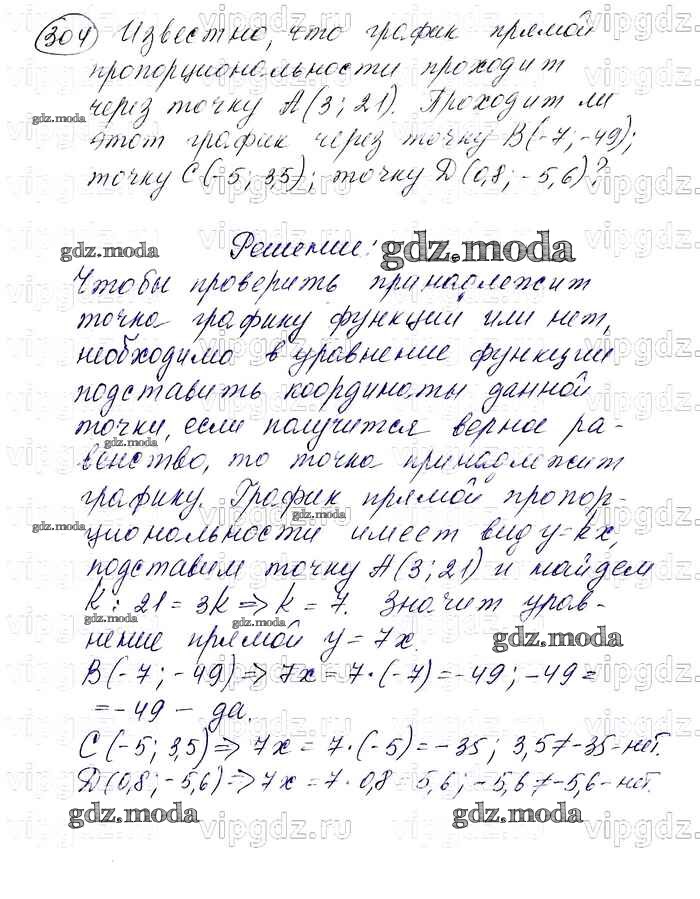 304 Известно, что график прямой
пропорциональности проходит
через точку A(3; 21). Проходит ли
этот график через точку B(-7; -49);
точку C(-5; 3,5); точку D(0,8; -5,6)?
Решение:
Чтобы проверить принадлежит
точка графику функции или нет,
необходимо в уравнение функции
подставить координаты данной
точки, если получится верное ра-
венство, то точка принадлежит
графику. График прямой пропор-
циональности имеет вид y=kx,
подставим точку A(3; 21) и найдем
k: 21 = 3k => k = 7. Значит урав-
нение прямой y = 7x.
B(-7; -49) => 7x = 7·(-7) = -49; -49 =
= -49 - да.
C(-5; 3,5) => 7x = 7·(-5) = -35; 3,5 ≠ -35 - нет.
D(0,8; -5,6) => 7x = 7·0,8 = 5,6; -5,6 ≠ -5,6 - нет.
gdz.moda
vipgdz.ru